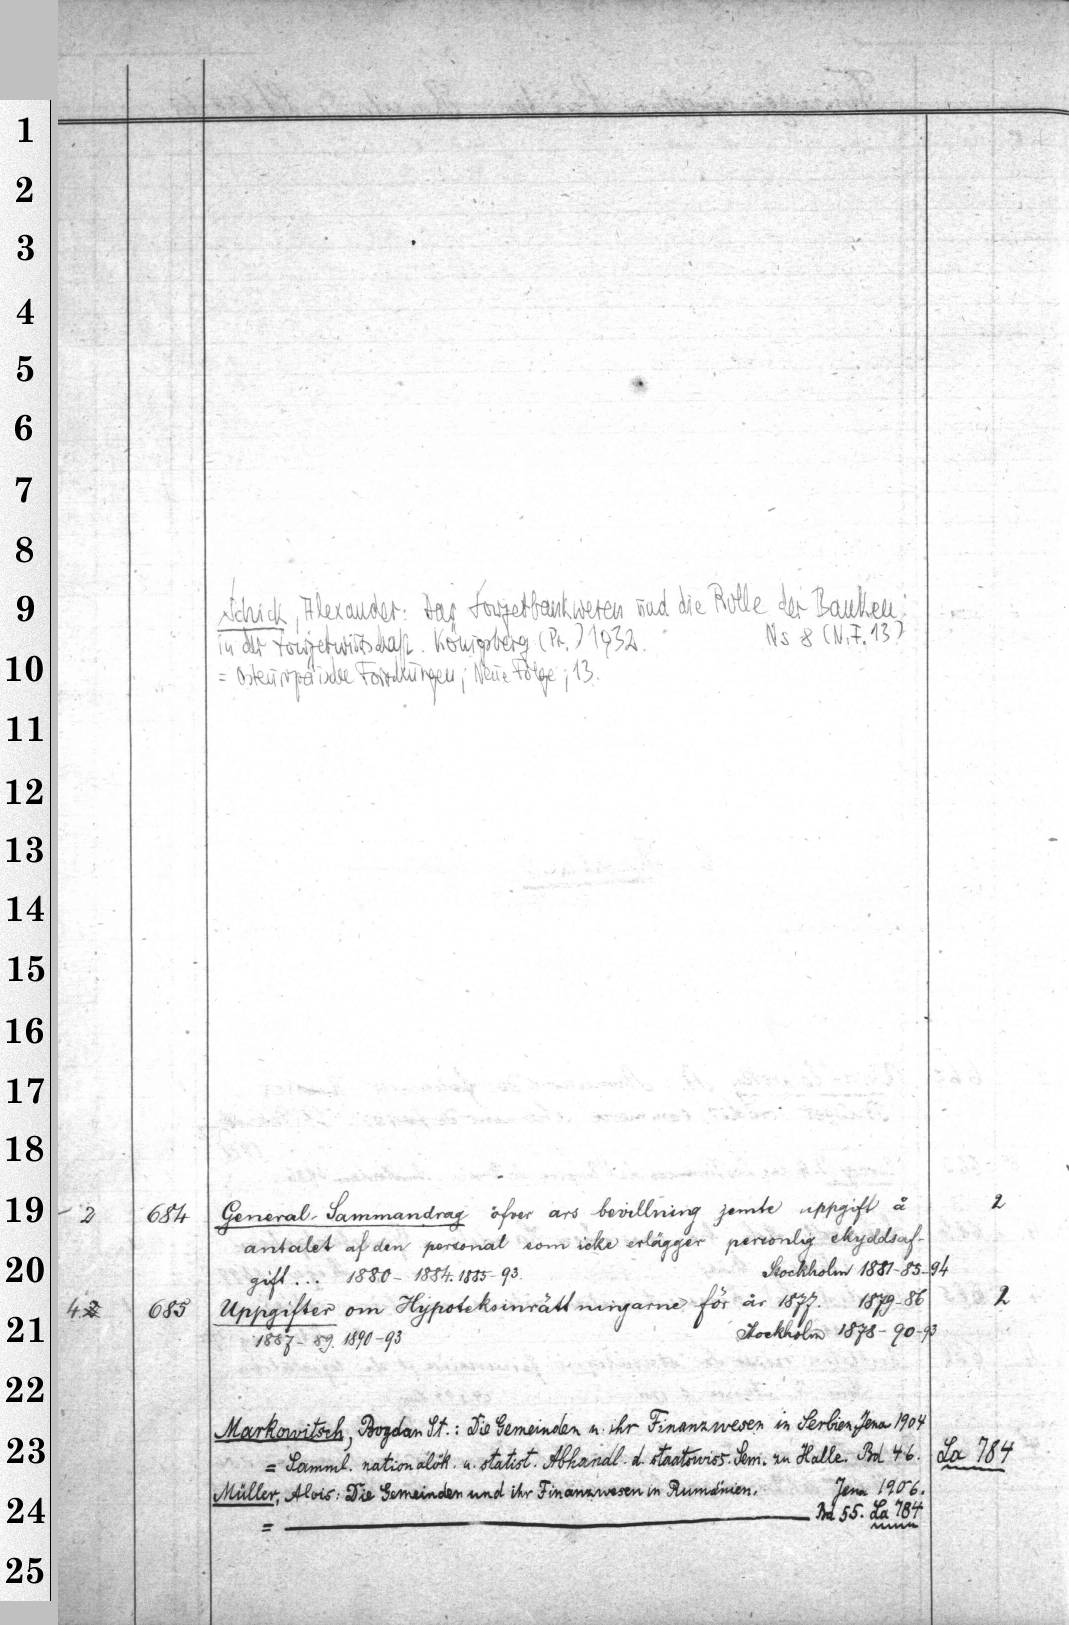 1
2
3
4
5
6
7
8
9
10
11
12
13
14
15
16
17
18
19
20
21
22
23
24
25
Schick, Alexander: Das Sowjetbankwesen und die Rolle der Banken
in der Sowjetwirtschaft. Königsberg (Pr.) 1932. Ns 8 (N.F. 13)
= Osteuropäische Forschungen; Neue Folge; 13.
2 684 General-Sammandrag öfver års bevillning jemte uppgift å 2
antalet af den personal som icke erlägger personlig skyddsaf-
gift... 1880-1884. 1885-93. Stockholm 1881-85-94
4 2 685 Uppgifter om Hypoteksinrättningarne för år 1877. 1879-86 2
1887-89. 1890-93 Stockholm 1878-90-93
Markowitsch, Bogdan St.: Die Gemeinden u. ihr Finanzwesen in Serbien, Jena 1904
= Samml. nationalök. u. statist. Abhandl. d. staatswiss. Sem. zu Halle. Bd 46. La 784
Müller, Alois: Die Gemeinden und ihr Finanzwesen in Rumänien. Jena 1906.
= Bd 55. La 784